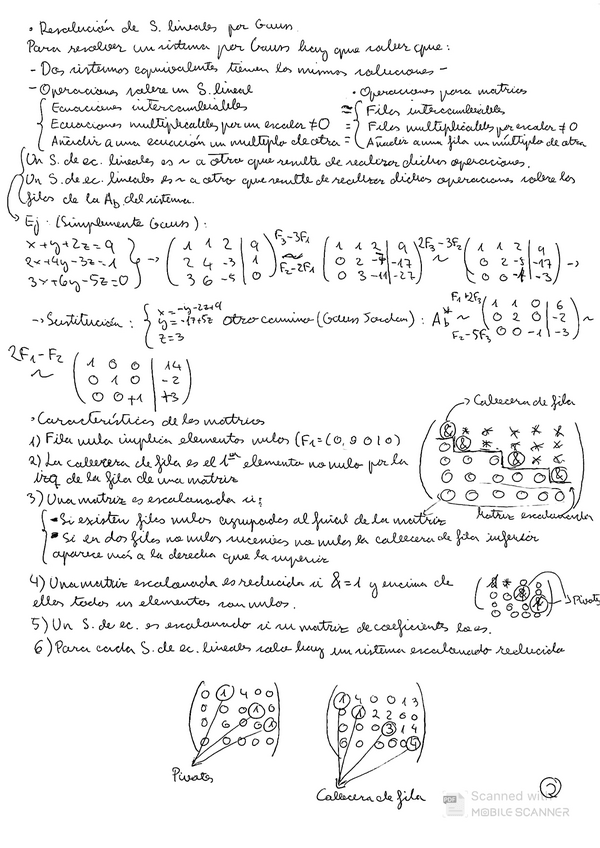 • Resolución de S. lineales por Gauss.
Para resolver un sistema por Gauss hay que saber que:
- Dos sistemas equivalentes tienen las mismas soluciones -
- Operaciones sobre un S. lineal • Operaciones para matrices
Ecuaciones intercambiables ≈ Filas intercambiables
Ecuaciones multiplicables por un escalar ≠0 = Filas multiplicables por escalar ≠0
Añadir a una ecuación un multiplo de otra = Añadir a una fila un múltiplo de otra
Un S. de ec. lineales es ~ a otro que resulte de realizar dichas operaciones.
Un S. de ec. lineales es ~ a otro que resulte de realizar dichas operaciones sobre las
filas de la Ab del sistema.
Ej: (Simplemente Gauss):
x+y+2z=9
2x+4y-3z=1
3x+6y-5z=0
→ ( 1 1 2 | 9
2 4 -3 | 1
3 6 -5 | 0 )
F3-3F1
~
F2-2F1
( 1 1 2 | 9
0 2 -7 | -17
0 3 -11 | -27 )
2F3-3F2
~
( 1 1 2 | 9
0 2 -7 | -17
0 0 -1 | -3 ) →
→ Sustitución: { x=-y-2z+9
z=3
otro camino (Gauss Jordan): Ab*
F1+2F3
F2-5F3
( 1 1 0 | 6
0 2 0 | -2
0 0 -1 | -3 ) ~
2F1-F2
~
( 1 0 0 | 14
0 1 0 | -2
0 0 +1 | +3 )
• Características de las matrices
1) Fila nula implica elementos nulos
2) La cabecera de fila es el 1er elemento no nulo por la
izq de la fila de una matriz
3) Una matriz es escalonada si:
- Si existen filas nulas agrupadas al final de la matriz
- Si en dos filas no nulas sucesivas no nulas la cabecera de fila inferior
aparece más a la derecha que la superior
Cabecera de fila
& * * * * *
0 & * * * *
0 0 0 & * *
0 0 0 0 0 &
0 0 0 0 0 0
Matriz escalonada
4) Una matriz escalonada es reducida si &=1 y encima de
ellas todos sus elementos son nulos.
Pivotes
5) Un S. de ec. es escalonado si su matriz de coeficientes lo es.
6) Para cada S. de ec. lineales solo hay un sistema escalonado reducido
0 1 4 0 0
0 0 0 1 0
0 0 0 0 1
0 0 0 0 0
Pivotes
1 4 0 0 1 3
0 1 2 2 0 0
0 0 0 3 1 4
0 0 0 0 0 4
Cabecera de fila
2
PDF Scanned with
MOBILE SCANNER